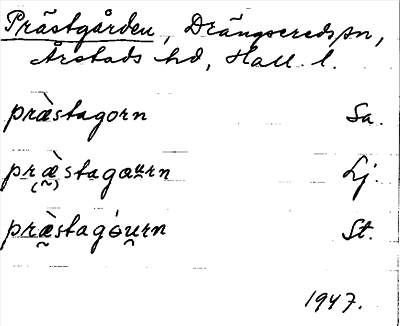 Prästgården, Drängseredspn,
Årstads hd, Hall. l.
prǽstagorn Sa.
præ̀stagaurn Lj.
præ̀stagóurn St.
1947.